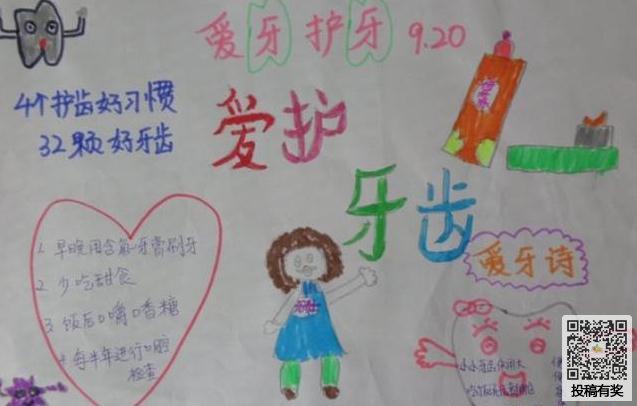 爱牙护牙 9.20
4个护齿好习惯
32颗好牙齿
爱护
牙齿
1 早晚用含氟牙膏刷牙
2 少吃甜食
3 饭后口嚼口香糖
4 每半年进行口腔
检查
爱牙诗
小小牙齿作用大
投稿有奖